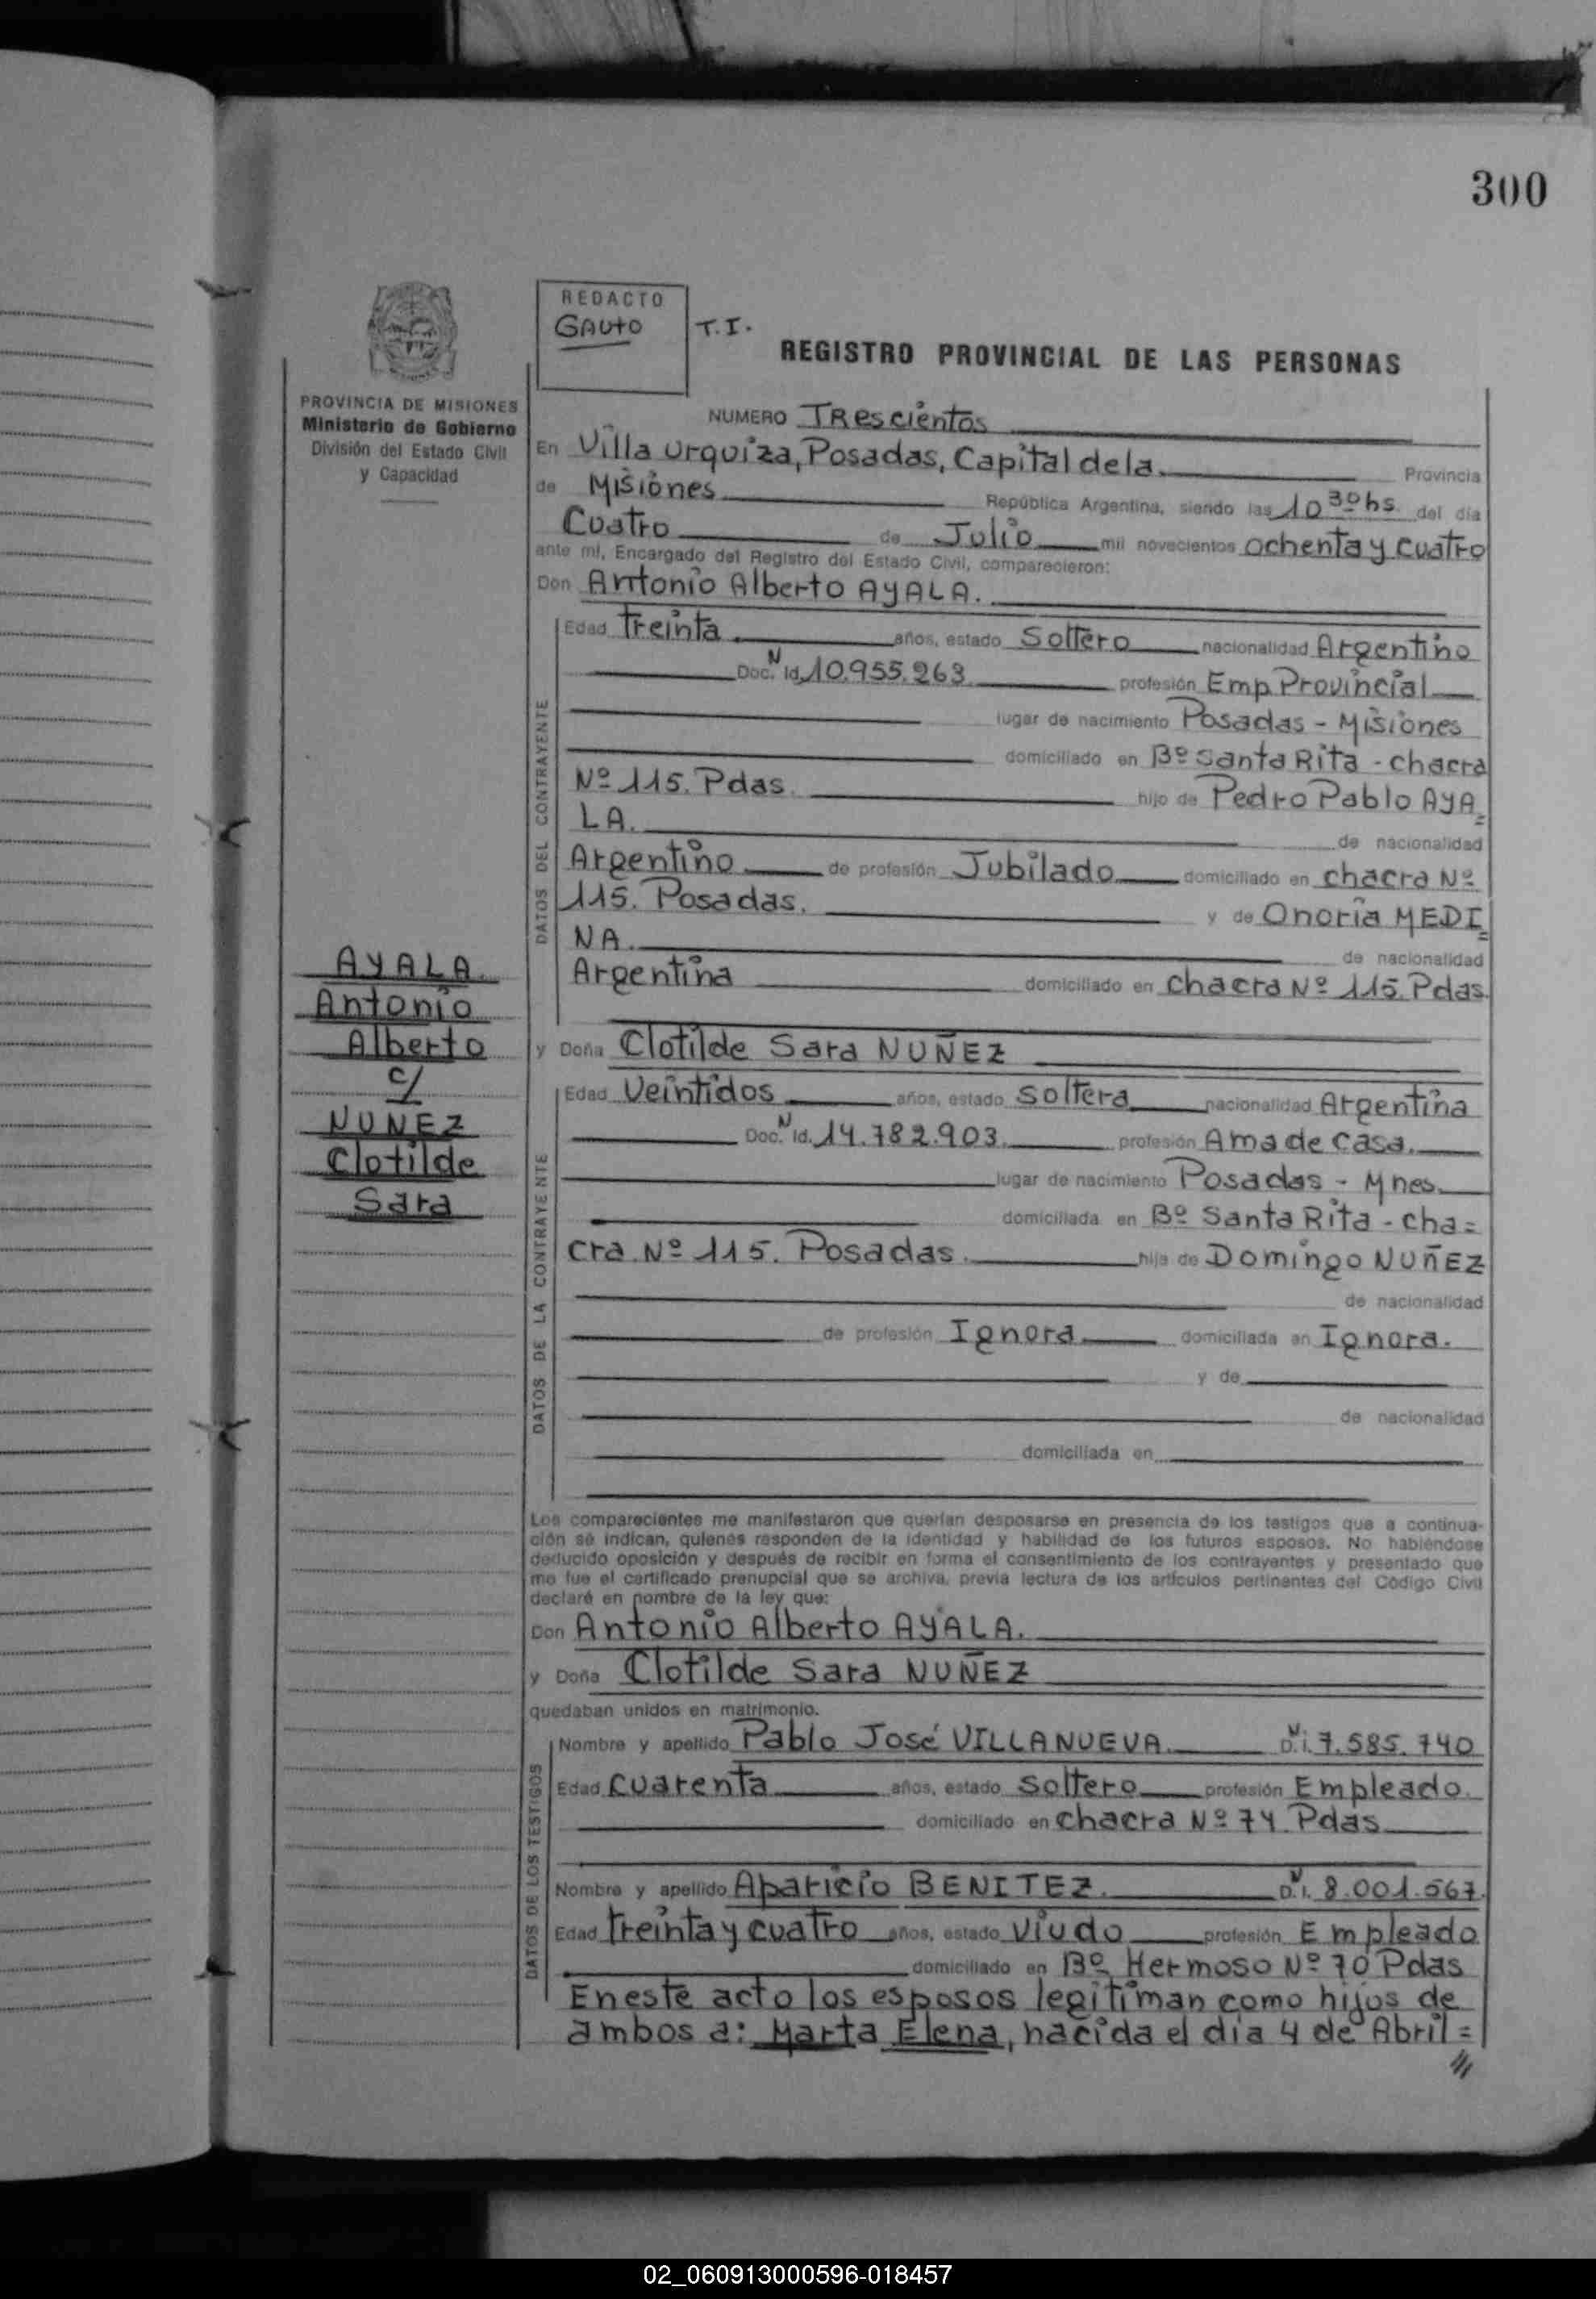 300
REDACTO
GAUTO
T.I.
REGISTRO PROVINCIAL DE LAS PERSONAS
PROVINCIA DE MISIONES
Ministerio de Gobierno
División del Estado Civil
y Capacidad
NUMERO TRescientos
En Villa Urquiza, Posadas, Capital de la Provincia
de Misiones República Argentina, siendo las 10 30 hs. del día
Cuatro de Julio mil novecientos ochenta y cuatro
ante mí, Encargado del Registro del Estado Civil, comparecieron:
Don Antonio Alberto AyALA.
DATOS DEL CONTRAYENTE
Edad treinta años, estado Soltero nacionalidad Argentino
Doc. N Id. 10.955.263 profesión Emp. Provincial
lugar de nacimiento Posadas - Misiones
domiciliado en Bº Santa Rita - chacra
Nº 115. Pdas. hijo de Pedro Pablo AyA=
LA. de nacionalidad
Argentino de profesión Jubilado domiciliado en chacra Nº
115. Posadas. y de Onoria MEDI=
NA. de nacionalidad
Argentina domiciliado en chacra Nº 115. Pdas.
AYALA
Antonio
Alberto
c/
NUNEZ
Clotilde
Sara
y Doña Clotilde Sara NUÑEZ
DATOS DE LA CONTRAYENTE
Edad Veintidos años, estado Soltera nacionalidad Argentina
Doc. N Id. 14.782.903. profesión Ama de Casa.
lugar de nacimiento Posadas - Mnes.
domiciliada en Bº Santa Rita - cha=
cra Nº 115. Posadas. hija de Domingo NUñEZ
de nacionalidad
de profesión Ignora domiciliada en Ignora.
y de
de nacionalidad
domiciliada en
Los comparecientes me manifestaron que querían desposarse en presencia de los testigos que a continua-
ción se indican, quienes responden de la identidad y habilidad de los futuros esposos. No habiéndose
deducido oposición y después de recibir en forma el consentimiento de los contrayentes y presentado que
me fue el certificado prenupcial que se archiva, previa lectura de los artículos pertinentes del Código Civil
declaré en nombre de la ley que:
Don Antonio Alberto AyALA.
y Doña Clotilde Sara NUÑEZ
quedaban unidos en matrimonio.
DATOS DE LOS TESTIGOS
Nombre y apellido Pablo José VILLANUEVA. D.N.i. 7.585.740
Edad cuarenta años, estado Soltero profesión Empleado.
domiciliado en chacra Nº 74 Pdas
Nombre y apellido Aparicio BENITEZ. D.N.i. 8.001.567.
Edad treinta y cuatro años, estado Viudo profesión Empleado
domiciliado en Bº Hermoso Nº 70 Pdas
En este acto los esposos legitiman como hijos de
ambos a: Marta Elena, nacida el día 4 de Abril =
///
02_060913000596-018457